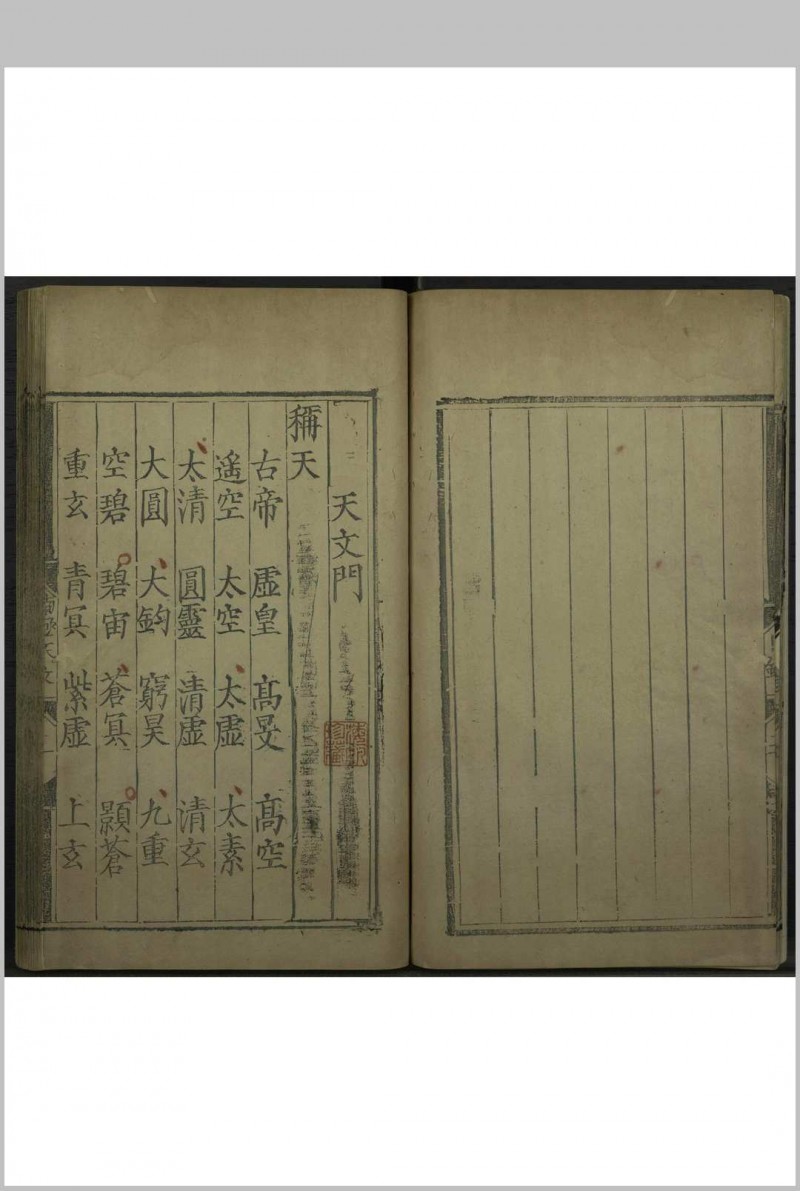 天文門
稱天
古帝 虛皇 髙旻 髙空
遥空 太空 太虛 太素
太清 圓靈 清虛 清玄
大圓 大鈞 窮昊 九重
空碧 碧宙 蒼冥 顥蒼
重玄 青冥 紫虛 上玄